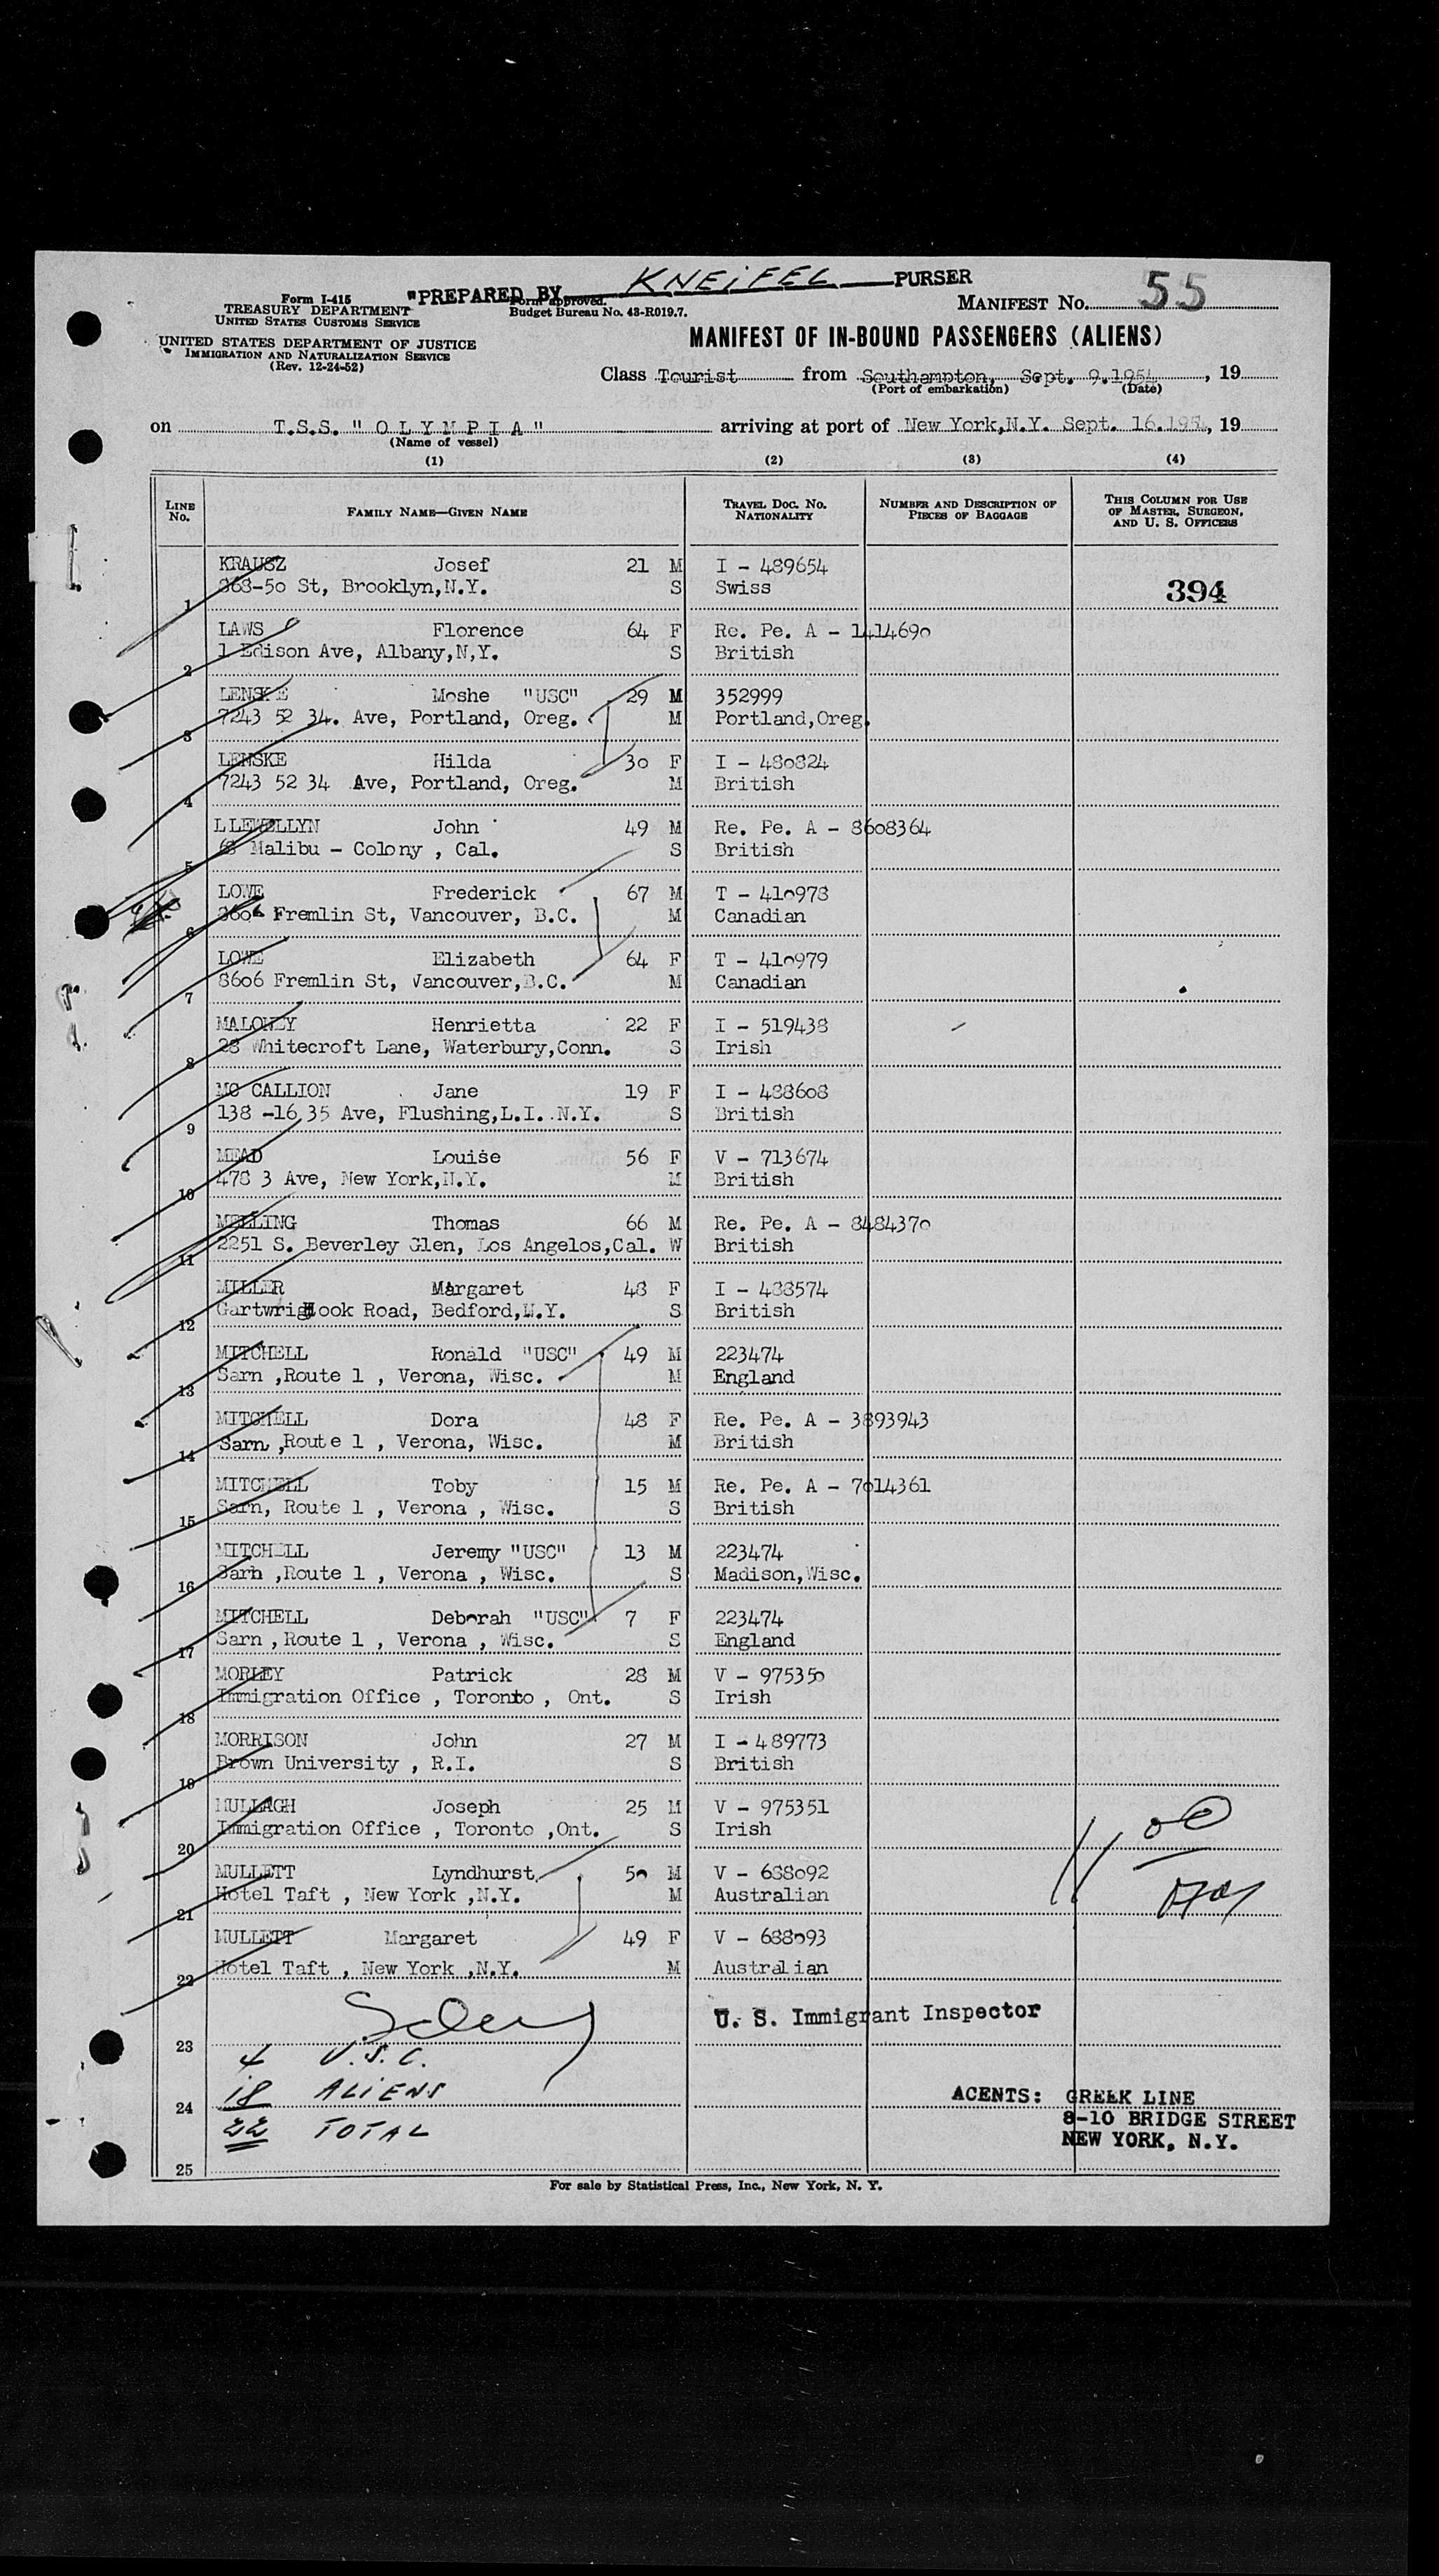 "PREPARED BY KNEIFEL PURSER
Form I-415
TREASURY DEPARTMENT
UNITED STATES CUSTOMS SERVICE
Form approved.
Budget Bureau No. 43-R019.7.
MANIFEST No. 55
UNITED STATES DEPARTMENT OF JUSTICE
IMMIGRATION AND NATURALIZATION SERVICE
(Rev. 12-24-52)
MANIFEST OF IN-BOUND PASSENGERS (ALIENS)
Class Tourist from Southampton, Sept. 9.1954, 19
(Port of embarkation) (Date)
on T.S.S. " O L Y M P I A " arriving at port of New York,N.Y. Sept. 16.195, 19
(Name of vessel)
(1) (2) (3) (4)
LINE No. FAMILY NAME—GIVEN NAME TRAVEL DOC. No. NATIONALITY NUMBER AND DESCRIPTION OF PIECES OF BAGGAGE THIS COLUMN FOR USE OF MASTER, SURGEON, AND U. S. OFFICERS
KRAUSZ Josef 21 M I - 489654
1 868-50 St, Brooklyn,N.Y. S Swiss 394
LAWS Florence 64 F Re. Pe. A - 1414690
2 1 Edison Ave, Albany,N,Y. S British
LENSKE Moshe "USC" 29 M 352999
3 7243 52 34. Ave, Portland, Oreg. M Portland,Oreg.
LENSKE Hilda 30 F I - 480824
4 7243 52 34 Ave, Portland, Oreg. M British
LLEWELLYN John 49 M Re. Pe. A - 8608364
5 68 Malibu - Colony , Cal. S British
LOWE Frederick 67 M T - 410978
6 8606 Fremlin St, Vancouver, B.C. M Canadian
LOWE Elizabeth 64 F T - 410979
7 8606 Fremlin St, Vancouver,B.C. M Canadian
MALONEY Henrietta 22 F I - 519438
8 28 Whitecroft Lane, Waterbury,Conn. S Irish
MC CALLION Jane 19 F I - 488608
9 138 -16 35 Ave, Flushing,L.I. N.Y. S British
MEAD Louise 56 F V - 713674
10 478 3 Ave, New York,N.Y. M British
MELLING Thomas 66 M Re. Pe. A - 8484370
11 2251 S. Beverley Glen, Los Angelos,Cal. W British
MILLER Margaret 48 F I - 488574
12 Hook Road, Bedford,N.Y. S British
MITCHELL Ronald "USC" 49 M 223474
13 Sarn ,Route 1 , Verona, Wisc. M England
MITCHELL Dora 48 F Re. Pe. A - 3893943
14 Sarn ,Route 1 , Verona, Wisc. M British
MITCHELL Toby 15 M Re. Pe. A - 7014361
15 Sarn, Route 1 , Verona , Wisc. S British
MITCHELL Jeremy "USC" 13 M 223474
16 Sarn ,Route 1 , Verona , Wisc. S Madison,Wisc.
MITCHELL Deborah "USC" 7 F 223474
17 Sarn , Route 1 , Verona , Wisc. S England
MORLEY Patrick 28 M V - 975350
18 Immigration Office , Toronto , Ont. S Irish
MORRISON John 27 M I - 489773
19 Brown University , R.I. S British
MULLAGH Joseph 25 M V - 975351
20 Immigration Office , Toronto ,Ont. S Irish
MULLETT Lyndhurst 50 M V - 688092
21 Hotel Taft , New York ,N.Y. M Australian
MULLETT Margaret 49 F V - 688093
22 Hotel Taft , New York ,N.Y. M Australian
U. S. Immigrant Inspector
23
4 U.S.C.
18 ALIENS
24
22 TOTAL
25
AGENTS: GREEK LINE
8-10 BRIDGE STREET
NEW YORK, N.Y.
For sale by Statistical Press, Inc., New York, N. Y.